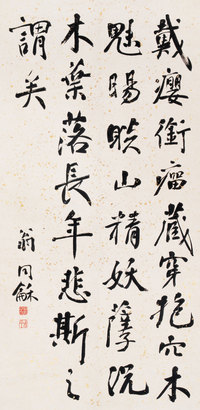 戴癭銜瘤藏穿抱穴木
魅睗睒山精妖孽況
木葉落長年悲斯之
謂矣
翁同龢